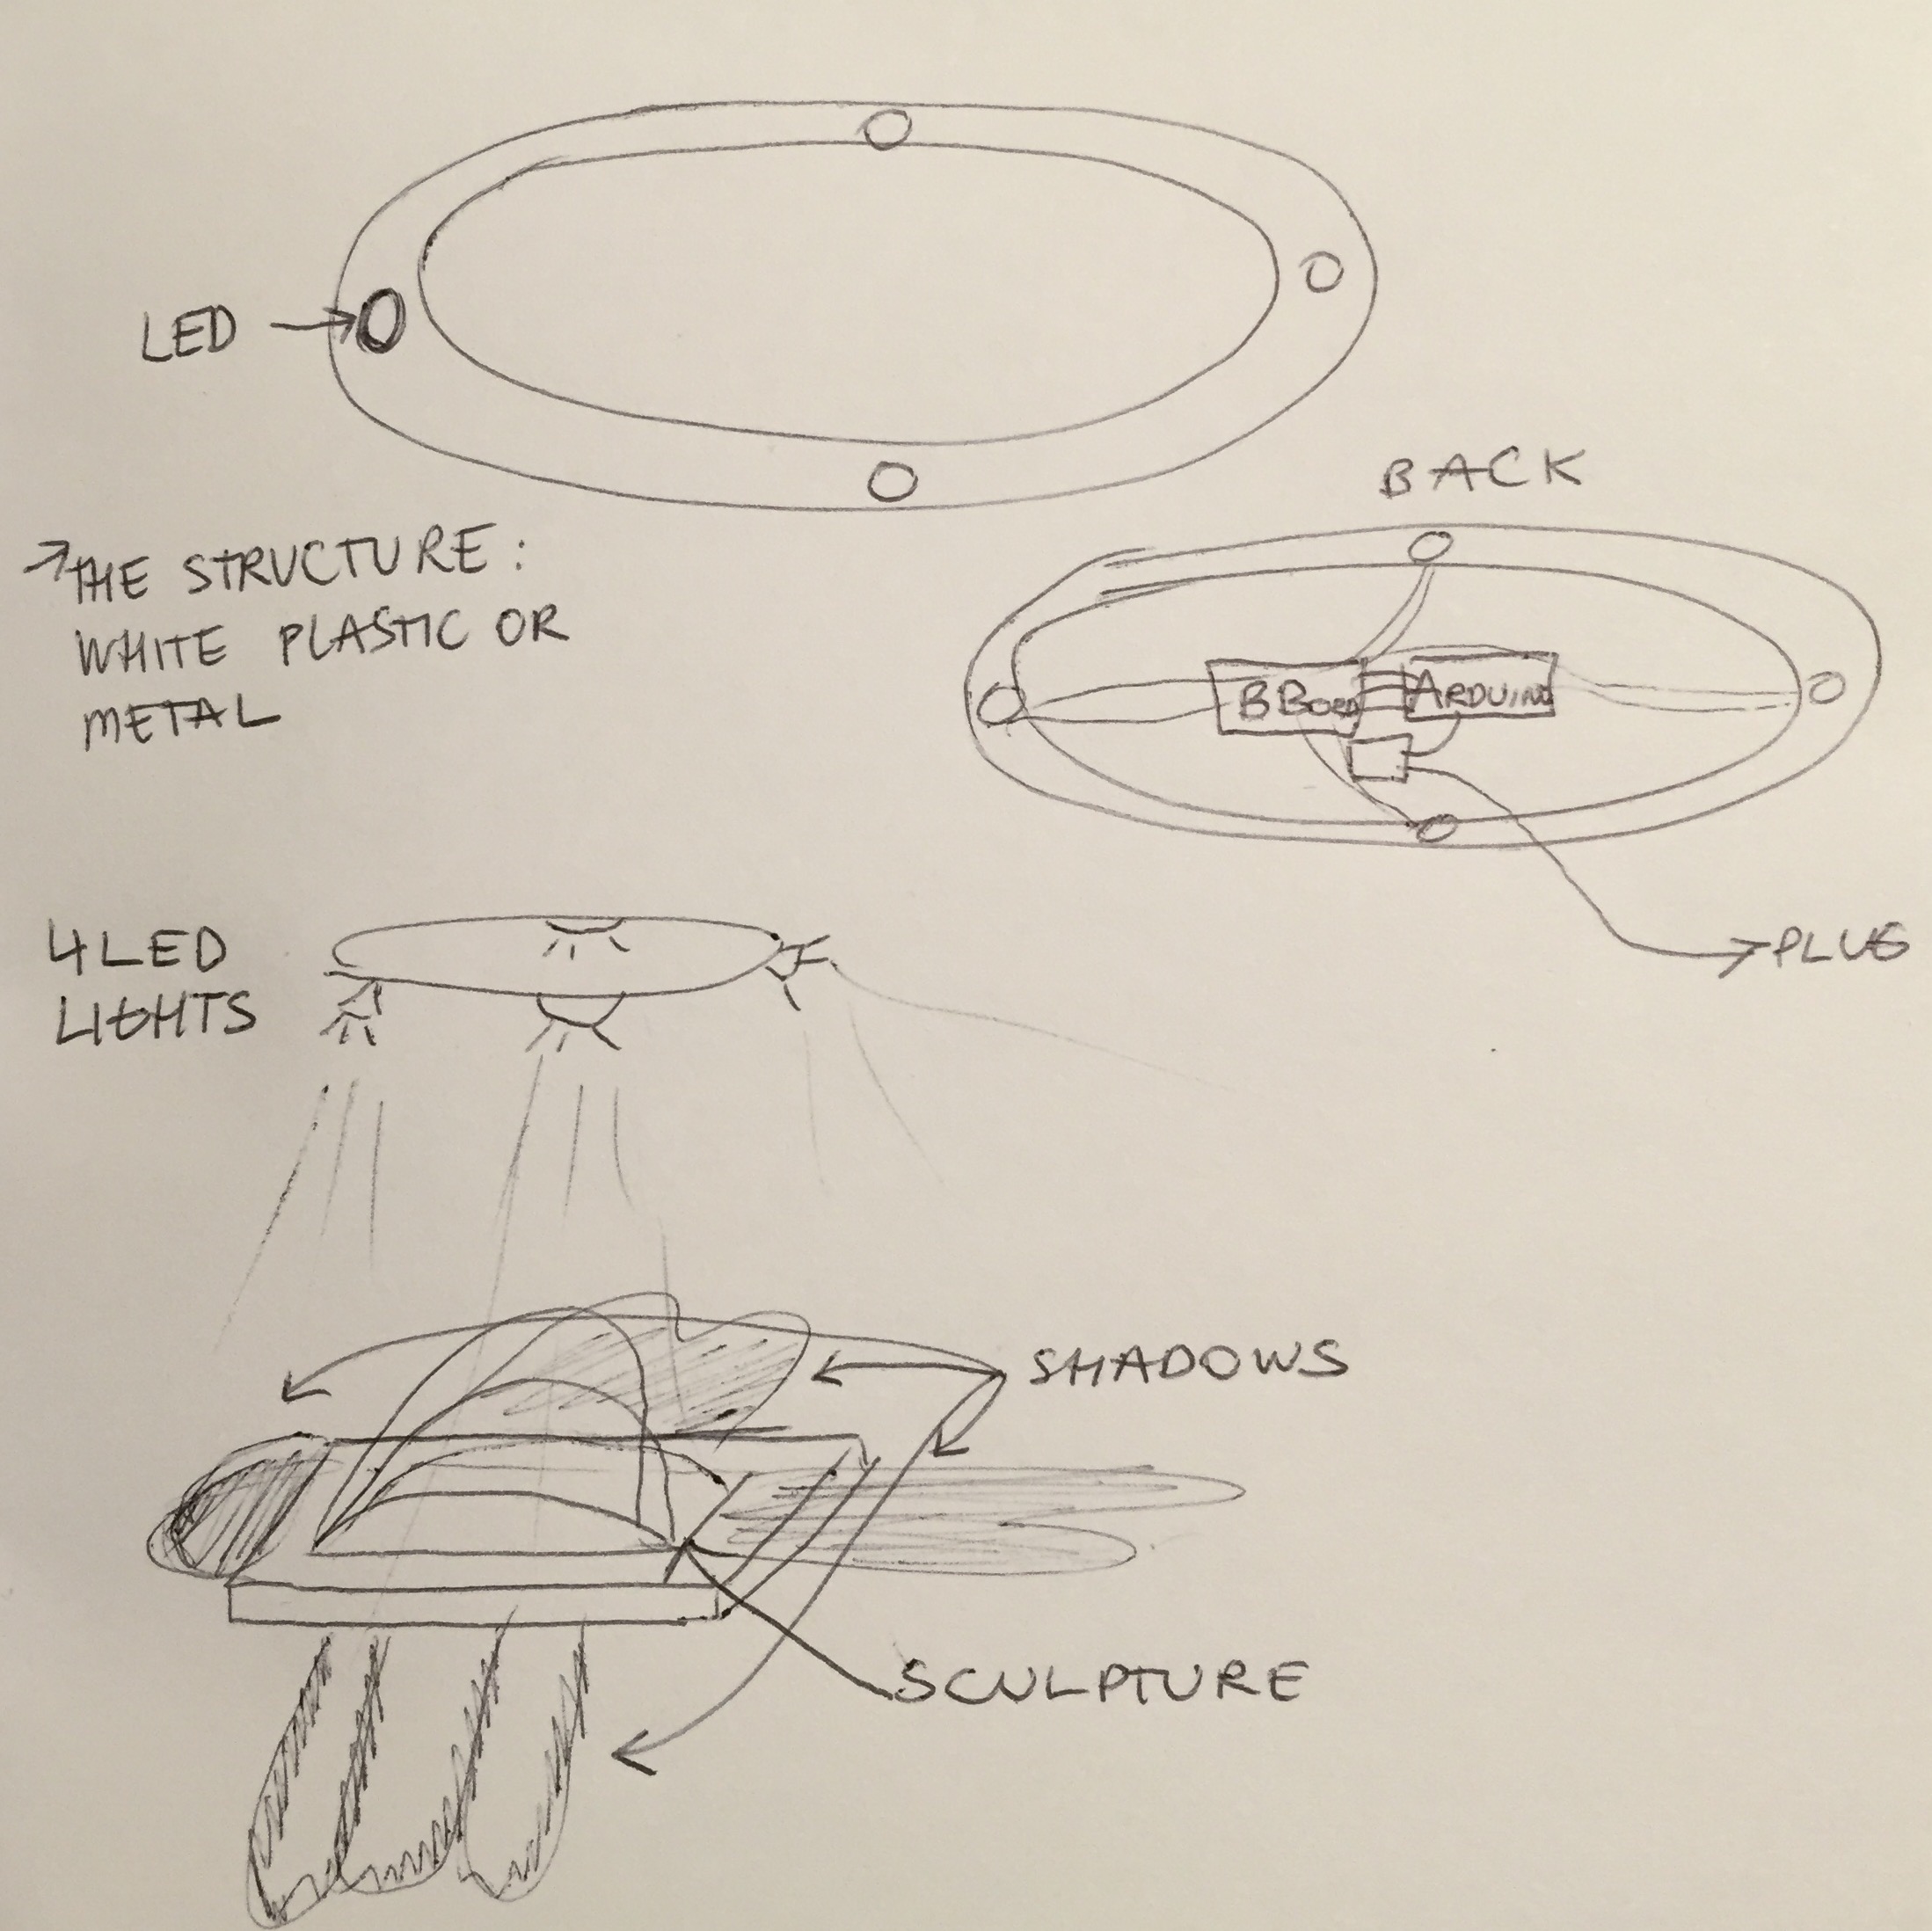 LED
BACK
THE STRUCTURE:
WHITE PLASTIC OR
METAL
BBORD
ARDUINO
4 LED
LIGHTS
PLUG
SHADOWS
SCULPTURE